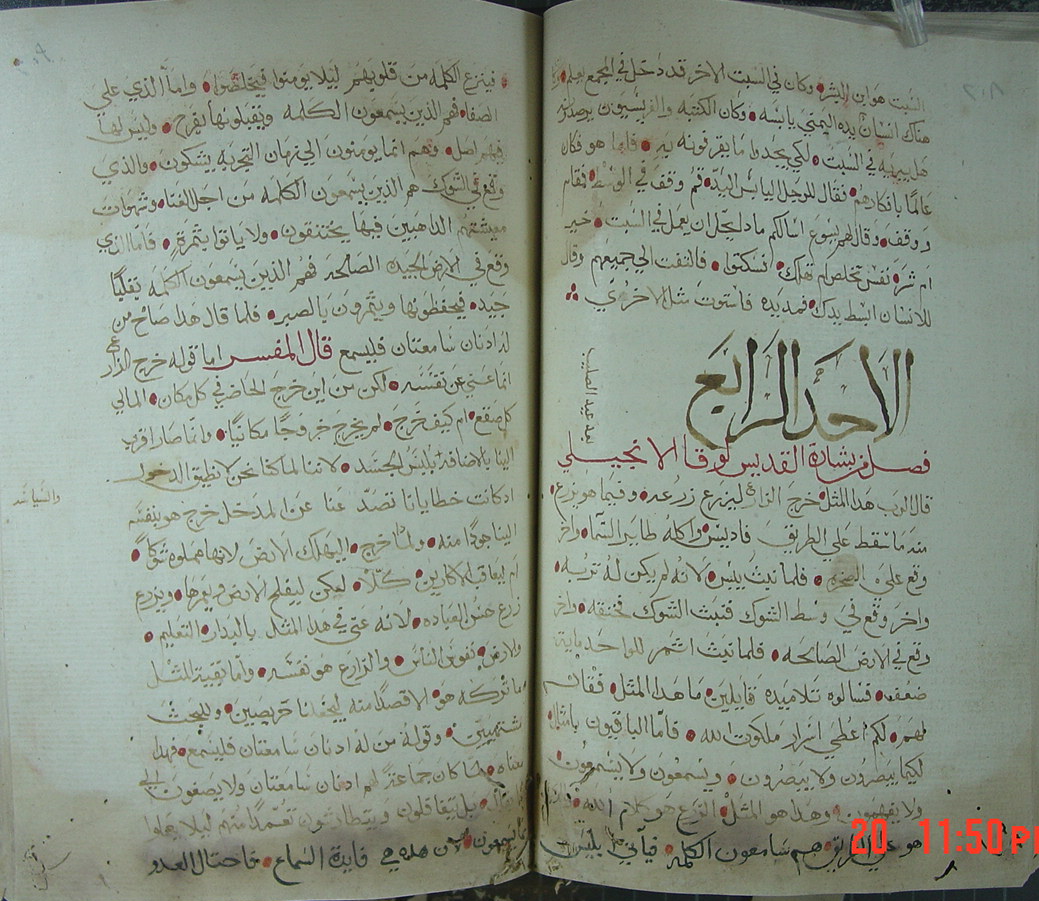 السبت هو ابن البشر وكان في السبت الاخر قد دخل في المجمع
هناك انسان يده اليمني يابسه وكان الكتبه والفريسيون يرصدونه
هل يبريه في السبت لكي يجدوا ما يقرفونه به فاما هو فكان
عالمًا بافكارهم فقال للرجل اليابس اليد قم وقف في الوسط فقام
ووقف وقال لهم يسوع اسالكم ماذا يحل ان يعمل في السبت خير
ام شر نفس تخلص ام تهلك اسكتوا فالتفت الي جميعهم وقال
للانسان ابسط يدك فمد يده فاستوت مثل الاخري
الاحد الرابع
بعد عيد الصليب
فصل من بشارة القديس لوقا الانجيلي
قال الرب هذا المثل خرج الزارع ليزرع زرعه وفيما هو يزرع
منه ما سقط علي الطريق فاديس واكله طاير السما واخر
وقع علي الصخره فلما نبث يبس لانه لم يكن له تربه
واخر وقع في وسط الشوك فنبث الشوك فخنقه واخر
وقع في الارض الصالحه فلما نبث اثمر للواحد مايه
ضعف فسالوه تلاميده قايلين ما هدا المثل فقال
لهم لكم اعطي اسرار ملكوت الله فاما الباقيون بامثال
لكيما يبصرون ولا يبصرون ويسمعون ولا يسمعون
ولا يفهمون وهدا هو المثل الزرع هو كلام الله
هو علي الطريق هم سامعون الكلمه فياتي بليس
فينزع الكلمه من قلوبهم ليلا يومنوا فيخلصوا واما الذي علي
الصفا فهم الذين يسمعون الكلمه ويقبلونها بفرح وليس لها
فيهم اصل وهم انما يومنون الي زمان التجربه يشكون والذي
وقع في الشوك هم الذين يسمعون الكلمه من اجل الغنا وشهوات
معيشتهم الداهبين فيها يختنقون ولا ياتوا بثمرة فاما الذي
وقع في الارض الجيده الصالحه فهم الذين يسمعون الكلمه بقلب
جيد فيحفظونها ويثمرون بالصبر فلما قال هدا صاح من
له ادنان سامعتان فليسمع قال المفسر اما قوله خرج الزارع
انما عني عن نفسه لكن من اين خرج الحاضر في كل مكان المالي
كل صقع ام كيف خرج لم يخرج خروجًا مكانيًا وانما صار اقرب
الينا بالاضافه بلبس الجسد لاننا لما كنا نحن لا نطيق الدخول
اد كانت خطايانا تصد عنا عن المدخل خرج هو بنفسه
الينا جودًا منه ولما خرج اليهلك الارض لانها مملوه شوكًا
ام ليعاقب الاكارين كلا لكن ليفلح الارض ويزرع
زرع حسن العباده لانه عني في هدا المثل بالبدار التعليم
والارض نفوس الناس والزارع هو نفسه واما بقية المثل
ما تركه هو الا قصدًا منه ليجدنا حريصين وللبحث
مشتهيين وقوله من له ادنان سامعتان فليسمع فهدا
معناه لما كان جماعة لهم ادنان سامعتان ولا يصغون الي
لان هده هي فايدة السماع فاحتال العدو
20 11:50 PM